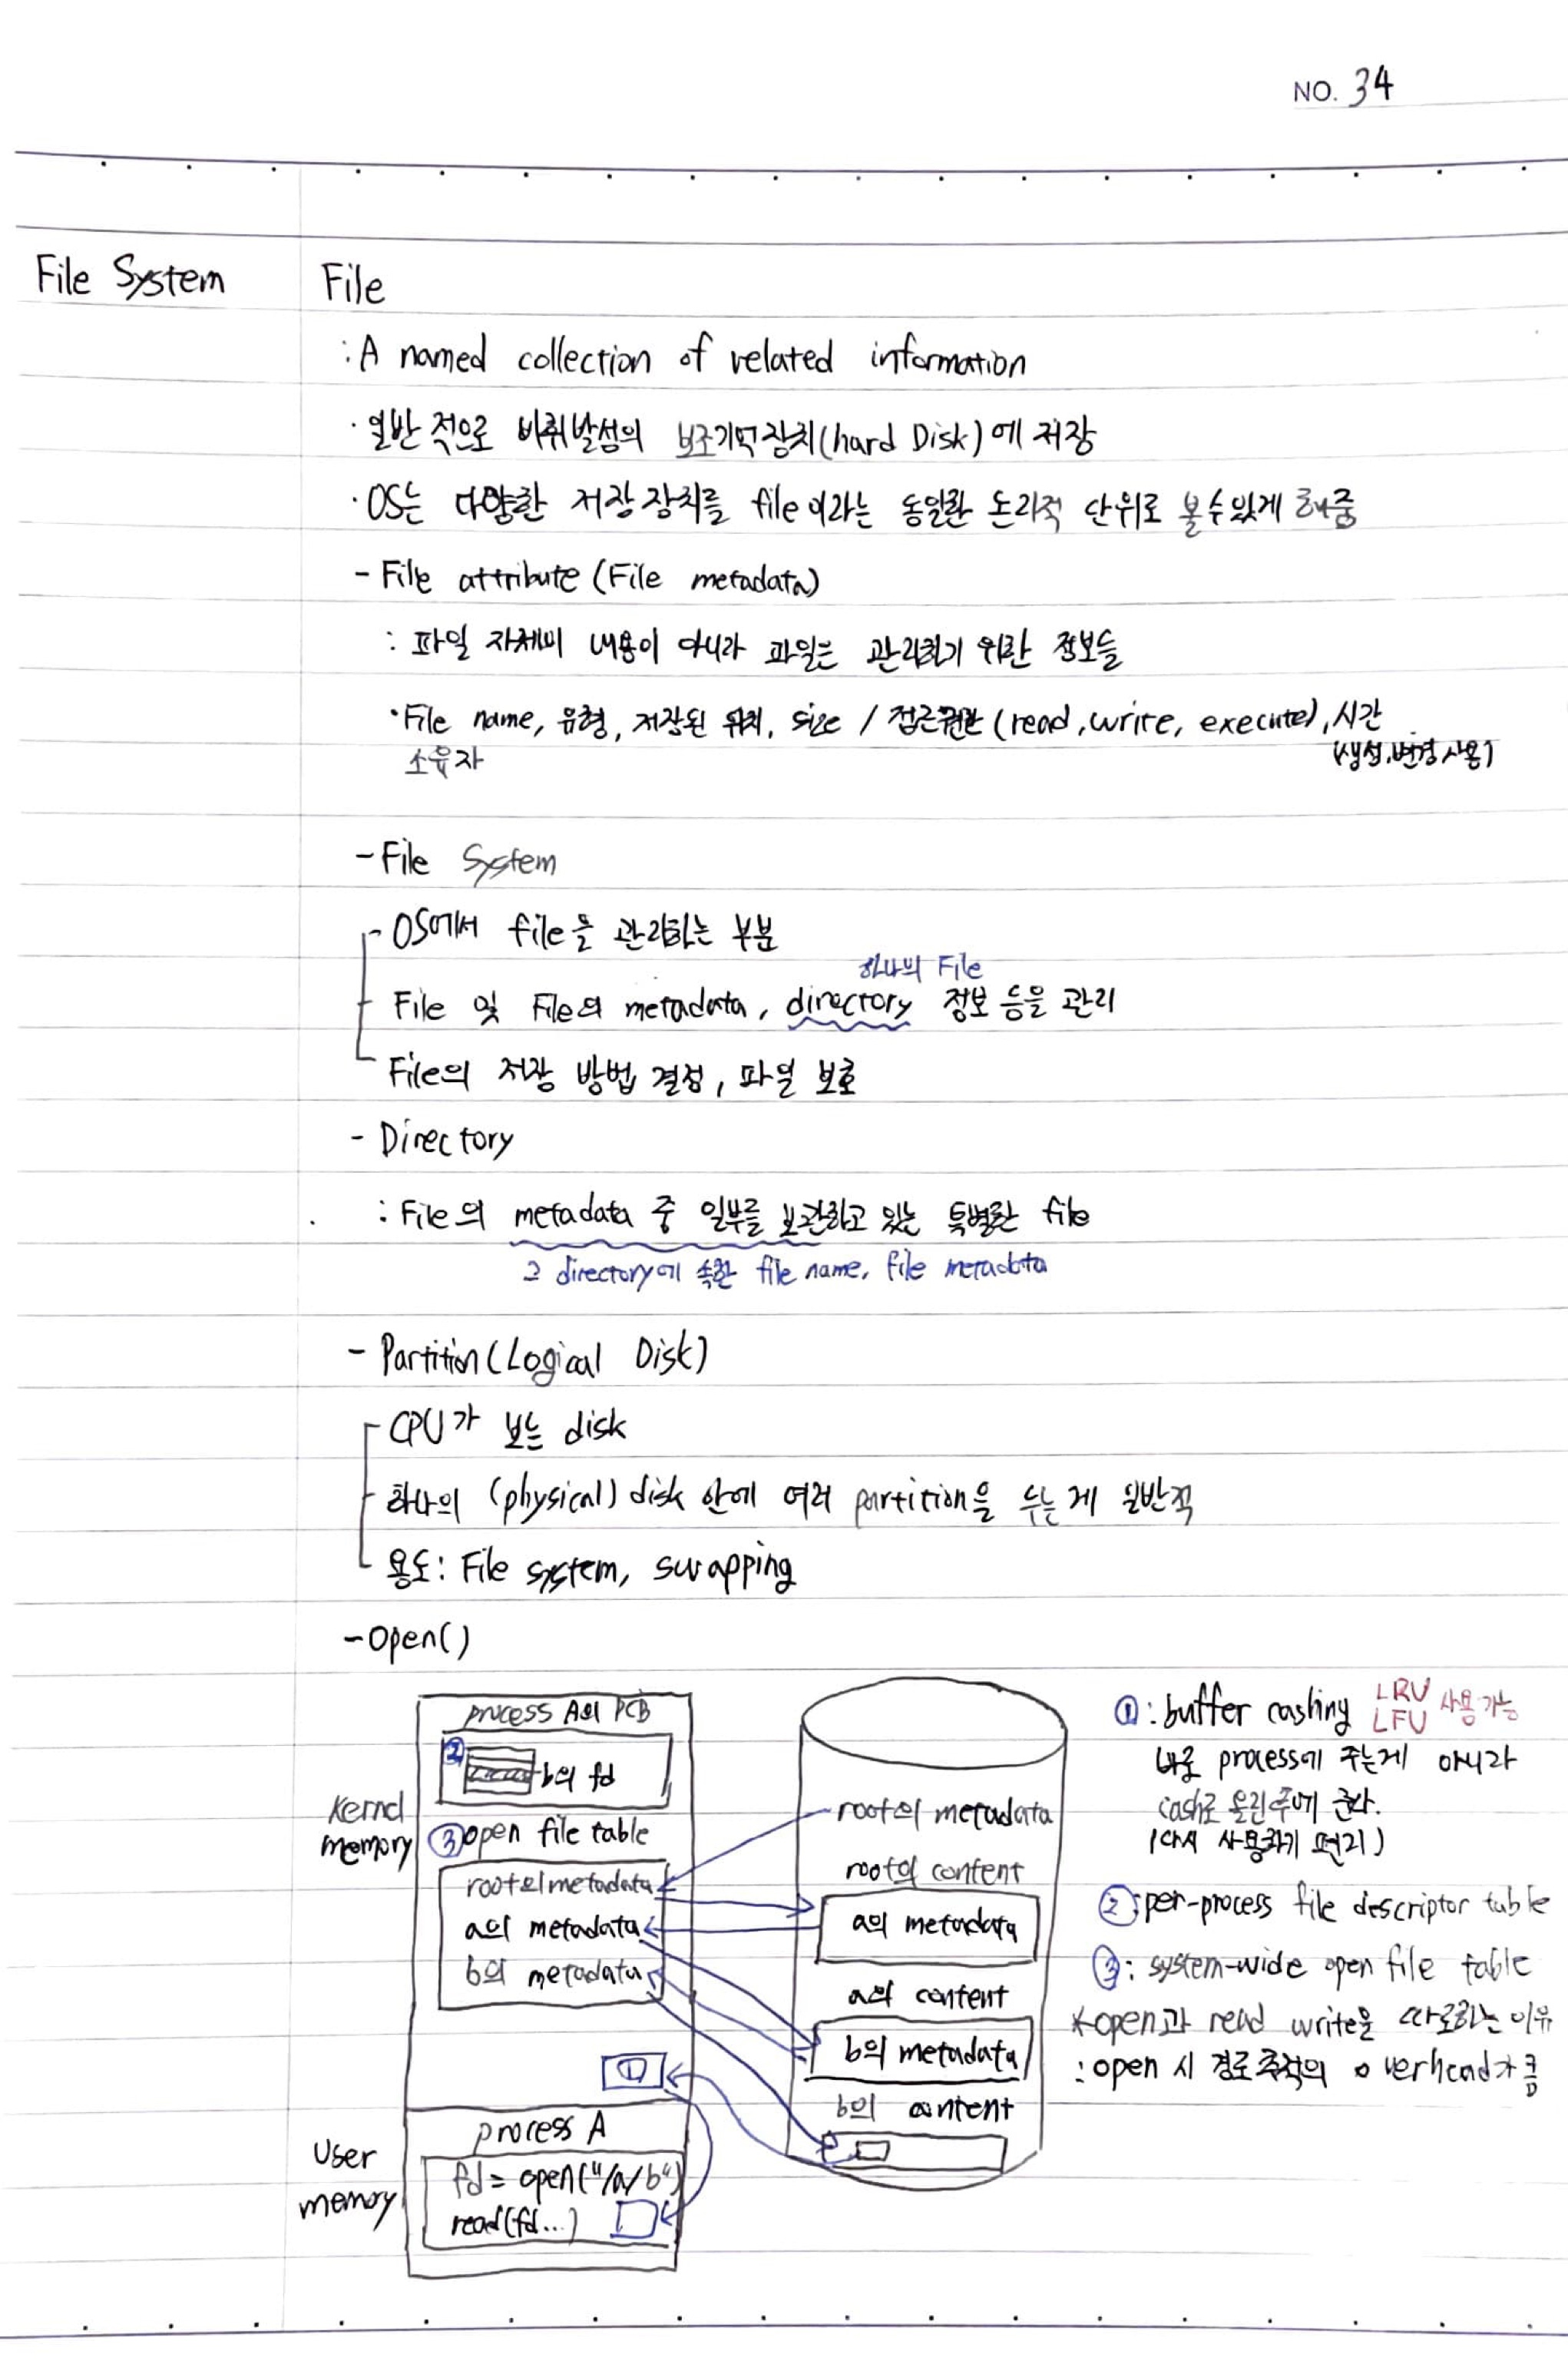 NO. 34
File System
File
: A named collection of related information
· 일반적으로 비휘발성의 보조기억장치(hard Disk)에 저장
· OS는 다양한 저장장치를 file이라는 동일한 논리적 단위로 볼 수 있게 해줌
- File attribute (File metadata)
: 파일 자체의 내용이 아니라 파일을 관리하기 위한 정보들
· File name, 유형, 저장된 위치, size / 접근권한 (read, write, execute), 시간
소유자
(생성, 변경, 사용)
- File System
- OS에서 file을 관리하는 부분
하나의 File
File 및 File의 metadata, directory 정보 등을 관리
File의 저장 방법 결정, 파일 보호
- Directory
: File의 metadata 중 일부를 보관하고 있는 특별한 file
그 directory에 속한 file name, file metadata
- Partition (Logical Disk)
CPU가 보는 disk
하나의 (physical) disk 안에 여러 partition을 두는 게 일반적
용도: File system, swapping
- Open()
Kernel memory
process A의 PCB
② b의 fd
③ open file table
root의 metadata
a의 metadata
b의 metadata
①
User memory
process A
fd = open("/a/b")
read(fd...)
root의 metadata
root의 content
a의 metadata
a의 content
b의 metadata
b의 content
①: buffer cashing LRU LFU 사용가능
바로 process에 주는게 아니라
cash로 올린 후에 준다.
(다시 사용하기 편리)
②: per-process file descriptor table
③: system-wide open file table
* open과 read write을 따로하는 이유
: open 시 경로 추적의 overhead가 큼